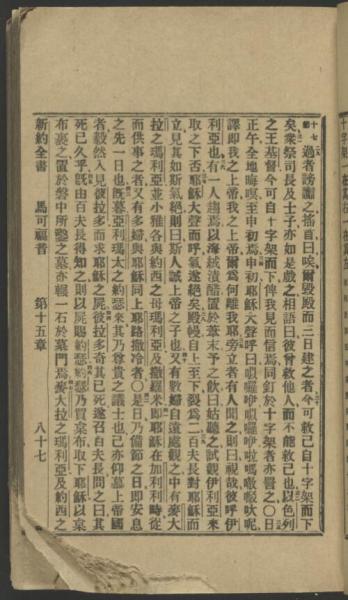 過者謗讟之搖首曰唉爾毀殿而三日建之者今可救己自十字架而下
矣衆祭司長及士子亦如是戲之相語曰彼曾救他人而不能救己也以色列
之王基督今可自十字架而下俾我見而信焉同釘於十字架者亦詈之〇日
正午全地晦暝至申初焉申初耶穌大聲呼曰嗌囉咿嗌囉咿啦嗎嚫㗑呔呢
譯即我之上帝我之上帝爾爲何離我耶旁立者有人聞之則曰視哉彼呼伊
利亞也有一人趨焉以海絨漬醋置於葦末予之飲曰姑聽之試觀伊利亞來
取之下否耶穌大聲而呼氣遂絕矣殿幔自上至下裂爲二百夫長對耶穌而
立見其如斯氣絕則曰斯人誠上帝之子也又有數婦自遠處觀之中有麥大
拉之瑪利亞並小雅各與約西之母瑪利亞及撒羅米即耶穌在加利利時從
而供事之者又有多婦與耶穌同上耶路撒冷者〇是日乃備節之日即安息
之先一日也既暮亞利瑪太之約瑟來其乃尊貴之議士也己亦仰慕上帝國
者毅然入見彼拉多而求耶穌之屍彼拉多奇其已死遂召百夫長問之曰其
死已久乎既由百夫長得知之則以屍賜約瑟約瑟乃買枲布取下耶穌以枲
布裹之置於磐中所鑿之墓亦輥一石於墓門焉麥大拉之瑪利亞及約西之
新約全書 馬可福音 第十五章 八十七